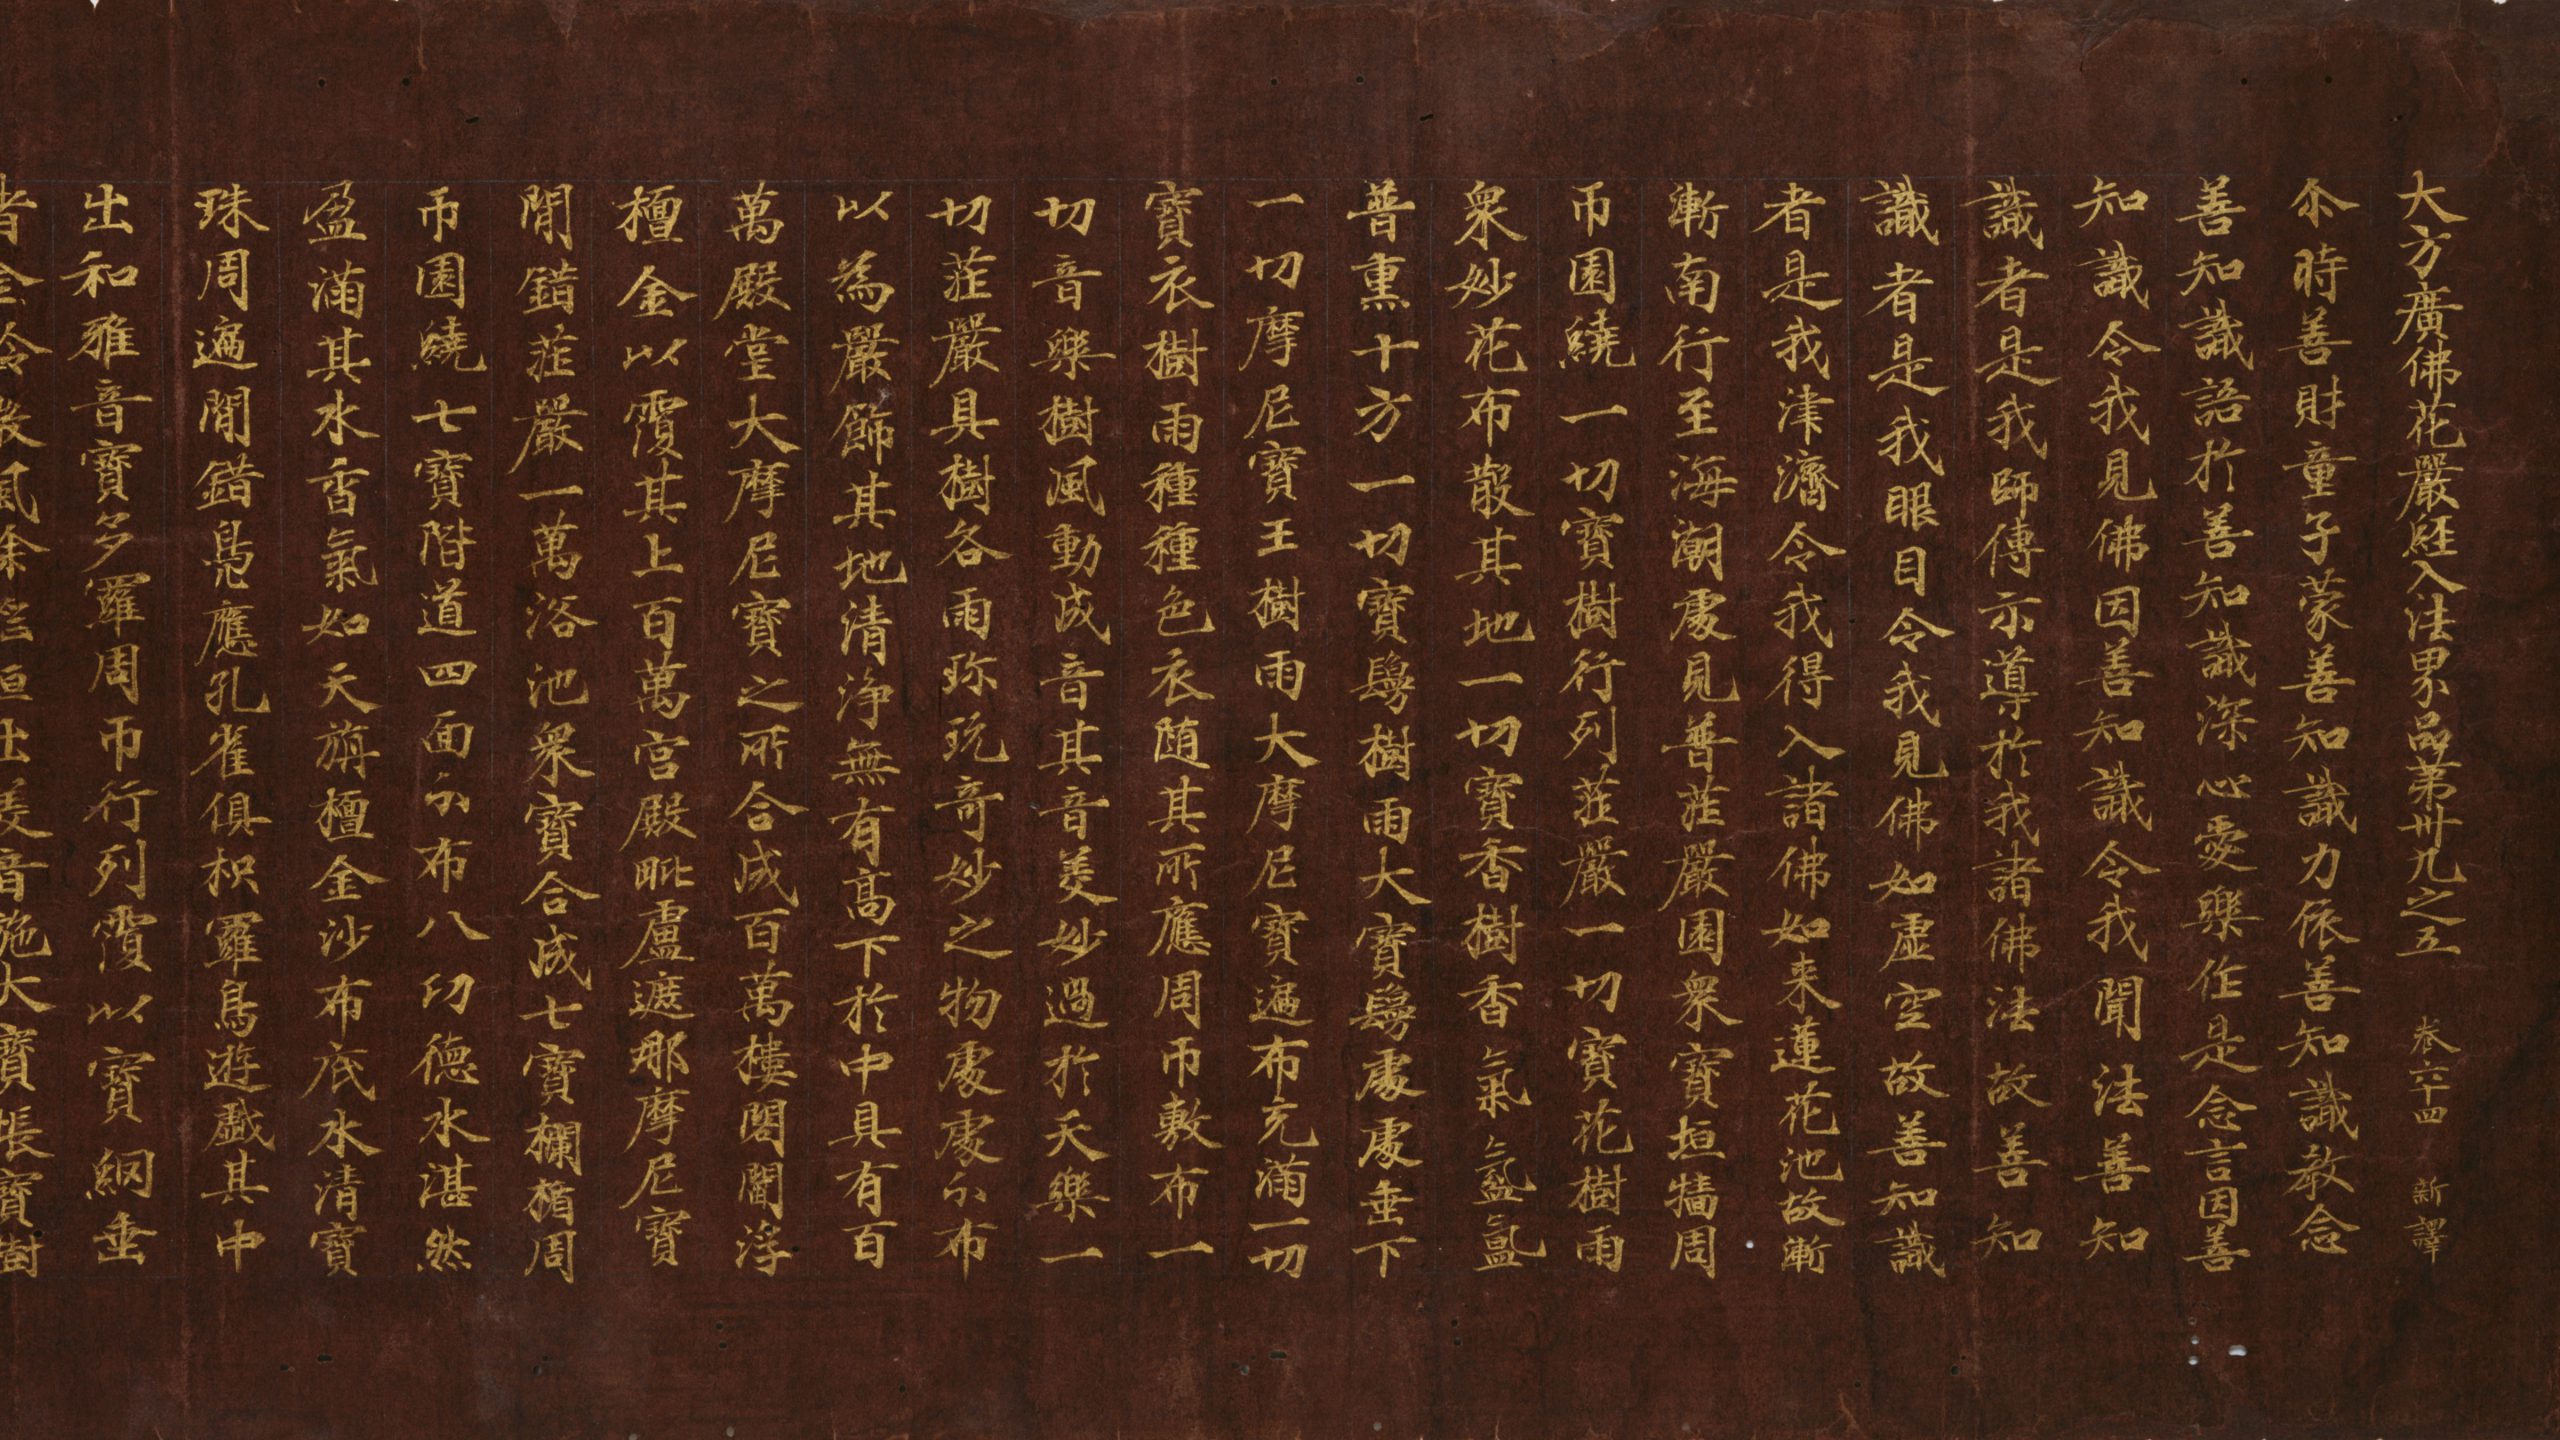 大方廣佛花嚴經入法界品第卅九之五 卷六十四 新譯
尒時善財童子蒙善知識力依善知識教念
善知識語於善知識深心愛樂作是念言因善
知識令我見佛因善知識令我聞法善知
識者是我師傅示導於我諸佛法故善知
識者是我眼目令我見佛如虛空故善知識
者是我津濟令我得入諸佛如来蓮花池故漸
漸南行至海潮處見普莊嚴園衆寶垣牆周
帀圍繞一切寶樹行列莊嚴一切寶花樹雨
衆妙花布散其地一切寶香樹香氣氤氳
普熏十方一切寶鬘樹雨大寶鬘處處垂下
一切摩尼寶王樹雨大摩尼寶遍布充滿一切
寶衣樹雨種種色衣随其所應周帀敷布一
切音樂樹風動成音其音美妙過於天樂一
切莊嚴具樹各雨珎玩奇妙之物處處分布
以為嚴飾其地清淨無有高下於中具有百
萬殿堂大摩尼寶之所合成百萬樓閣閻浮
檀金以覆其上百萬宮殿毗盧遮那摩尼寶
間錯莊嚴一萬浴池衆寶合成七寶欄楯周
帀圍繞七寶階道四面分布八功德水湛然
盈滿其水香氣如天旃檀金沙布底水清寶
珠周遍間錯鳧鴈孔雀俱枳羅鳥遊戲其中
出和雅音寶多羅周帀行列覆以寶網垂